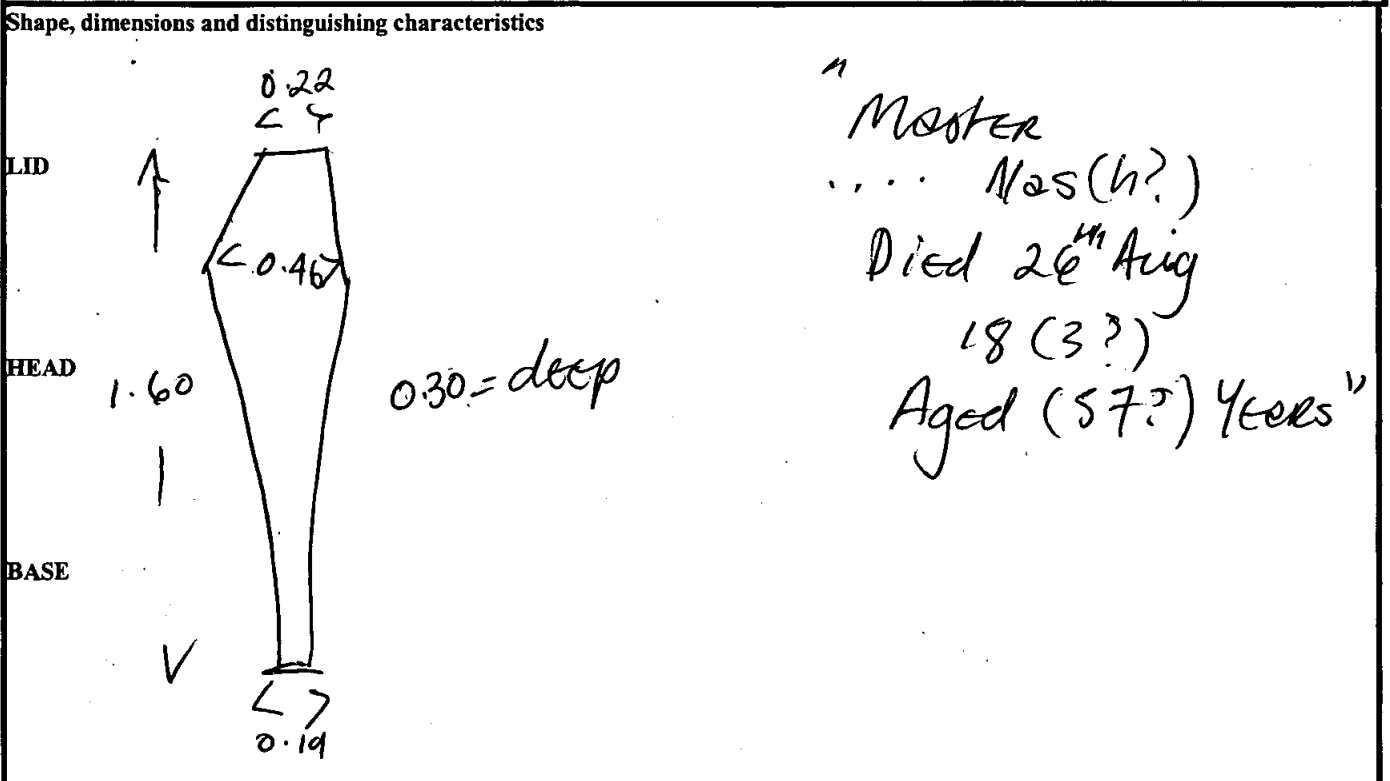 Shape, dimensions and distinguishing characteristics
0.22
LID
< 0.46 >
HEAD
1.60
0.30 = deep
BASE
< >
0.19
"Master
.... Nas(h?)
Died 26th Aug
18(3?)
Aged (57?) Years"